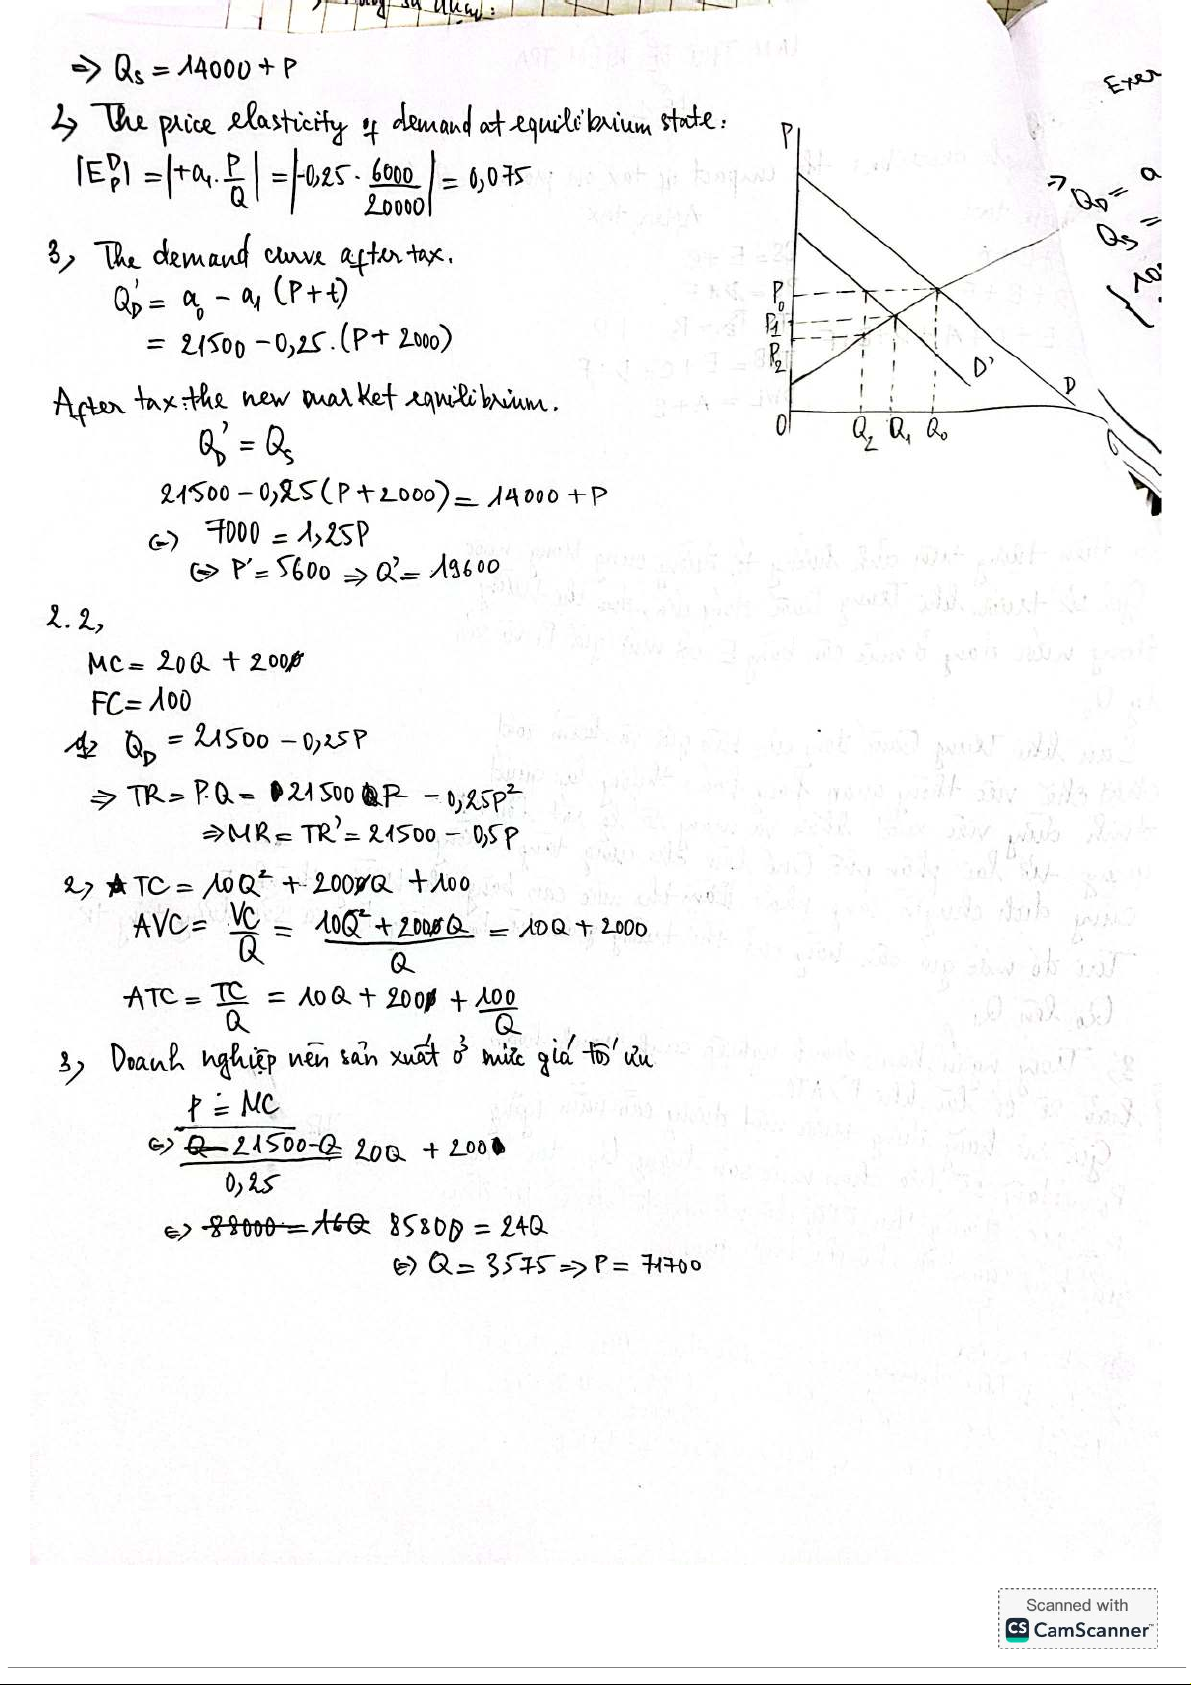 ⇒ Qs = 14000 + P
2, The price elasticity of demand at equilibrium state:
|E^D_P| = |+a₁. P/Q| = |-0,25 . 6000/20000| = 0,075
3, The demand curve after tax.
Q'_D = a₀ - a₁ (P+t)
= 21500 - 0,25.(P + 2000)
After tax: the new market equilibrium.
Q'_D = Qs
21500 - 0,25(P+2000) = 14000 + P
⇔ 7000 = 1,25P
⇔ P' = 5600 ⇒ Q' = 19600
2.2,
MC = 20Q + 200
FC = 100
1, Q_D = 21500 - 0,25P
⇒ TR = P.Q = 21500 P - 0,25P²
⇒ MR = TR' = 21500 - 0,5P
2, TC = 10Q² + 200Q + 100
AVC = VC/Q = (10Q² + 200Q)/Q = 10Q + 2000
ATC = TC/Q = 10Q + 200 + 100/Q
3, Doanh nghiệp nên sản xuất ở mức giá tối ưu
P = MC
⇔ Q - 21500 - Q 20Q + 200
0,25
⇔ 88000 = 16Q 85800 = 24Q
⇔ Q = 3575 ⇒ P = 71700
P
P₀
P₁
P₂
O
Q₂ Q₁ Q₀
D'
D
Exer
⇒ Q_D = a
Qs =
Scanned with
CS CamScanner